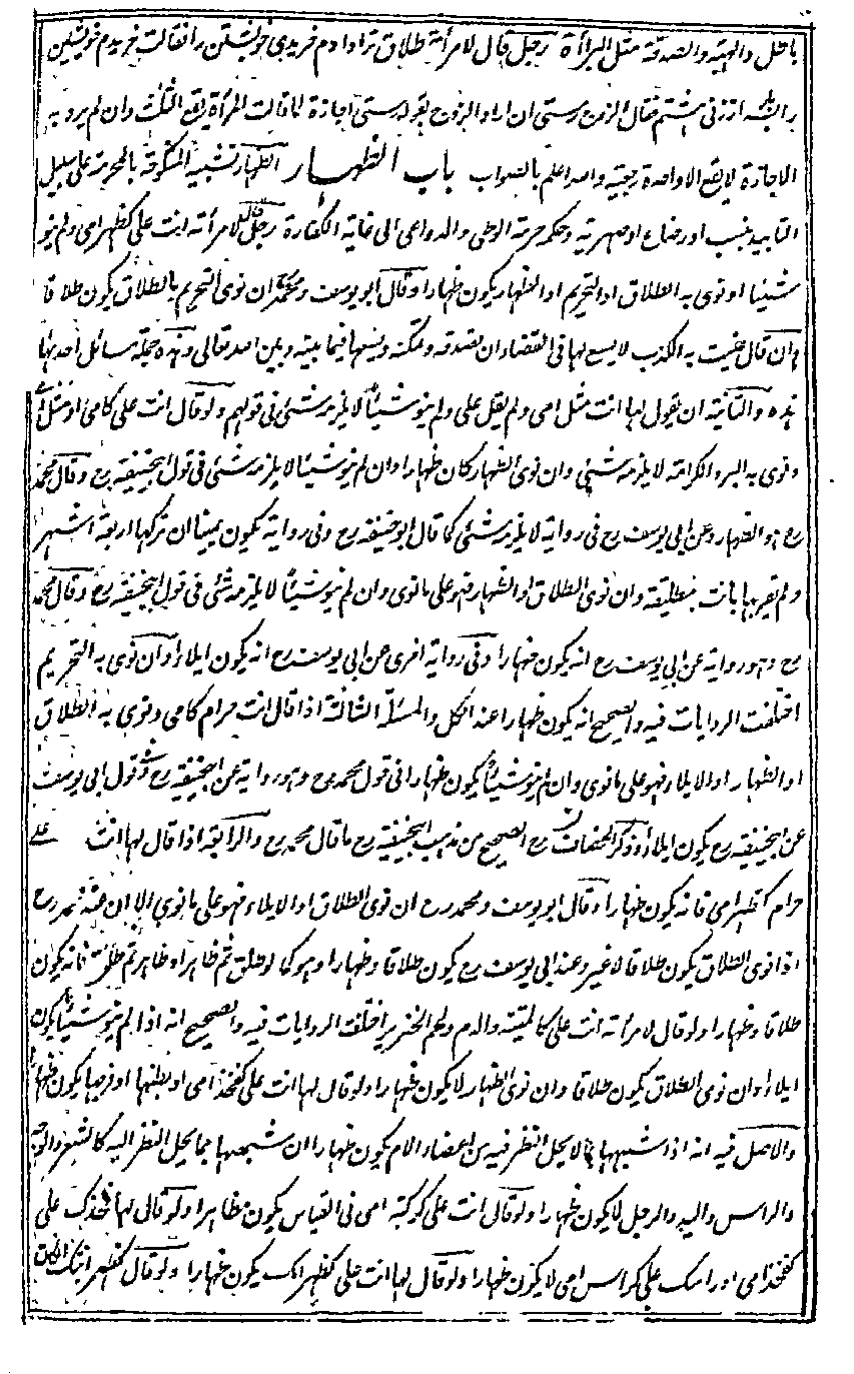 باطل والهبة والصدقة مثل البرأة رجل قال لامرأته طلاق ترا دادم خريدى خويشتن را فقالت خريدم خويشتن
را فقال الزوج رستى ان اراد الزوج بقوله رستى اجازة لما قالت المرأة يقع الثلث وان لم يرد به
الاجازة لا يقع الا واحدة رجعية والله اعلم بالصواب باب الظهار الظهار تشبيه المنكوحة بالمحرمة على سبيل
التابيد بنسب او رضاع او صهرية وحكمه حرمة الوطى والدواعى الى غاية الكفارة رجل قال لامرأته انت على كظهر امى ولم ينو
شيئا او نوى به الطلاق او التحريم او الظهار يكون ظهارا وقال ابو يوسف ومحمد ان نوى التحريم بالطلاق يكون طلاقا
وان قال عنيت به الكذب لا يسع لها فى القضاء ان تصدقه وتمكنه ويسعها فيما بينه وبين الله تعالى وهذه جملة مسائل احدها
هذه والثانية ان يقول لها انت مثل امى ولم يقل على ولم ينو شيئا لا يلزمه شئ فى قولهم ولو قال انت على كامى او مثل امى
ونوى به البر والكرامة لا يلزمه شئ وان نوى الظهار كان ظهارا وان لم ينو شيئا لا يلزمه شئ فى قول ابيحنيفة رح وقال محمد
رح هو الظهار وعن ابى يوسف رح فى رواية لا يلزمه شئ كما قال ابو حنيفة رح وفى رواية يكون يمينا ان تركها اربعة اشهر
ولم يقربها بانت بتطليقة وان نوى الطلاق او الظهار فهو على ما نوى وان لم ينو شيئا لا يلزمه شئ فى قول ابيحنيفة رح وقال محمد
رح وهو رواية عن ابى يوسف رح انه يكون ظهارا وفى رواية اخرى عن ابى يوسف رح انه يكون ايلاء وان نوى به التحريم
اختلفت الروايات فيه والصحيح انه يكون ظهارا عند الكل والمسئلة الثالثة اذا قال انت حرام كامى ونوى به الطلاق
او الظهار او الايلاء فهو على ما نوى وان لم ينو شيئا يكون ظهارا فى قول محمد رح وهو رواية عن ابيحنيفة رح وقول ابى يوسف
عن ابيحنيفة رح يكون ايلاء وذكر الخصاف رح الصحيح من مذهب ابيحنيفة رح ما قال محمد رح والرابعة اذا قال لها انت على
حرام كظهر امى فانه يكون ظهارا وقال ابو يوسف ومحمد رح ان نوى الطلاق او الايلاء فهو على ما نوى الا ان عند محمد رح
اذا نوى الطلاق يكون طلاقا لا غير وعند ابى يوسف رح يكون طلاقا وظهارا وهو كما لو طلق ثم ظاهر او ظاهر ثم طلق فانه يكون
طلاقا وظهارا ولو قال لامرأته انت على كالميتة والدم ولحم الخنزير اختلفت الروايات فيه والصحيح انه اذا لم ينو شيئا يكون
ايلاء وان نوى الطلاق يكون طلاقا وان نوى الظهار لا يكون ظهارا ولو قال لها انت على كفخذ امى او بطنها او فرجها يكون ظهارا
والاصل فيه انه اذا شبهها بما لا يحل النظر فيه من اعضاء الام يكون ظهارا وان شبهها بما يحل النظر اليه كالشعر والوجه
والراس واليد والرجل لا يكون ظهارا ولو قال انت على كركبة امى فى القياس يكون مظاهرا ولو قال لها فخذك على
كفخذ امى او راسك على كراس امى لا يكون ظهارا ولو قال لها انت على كظهر امك يكون ظهارا ولو قال كظهر ابنتك ان كانت